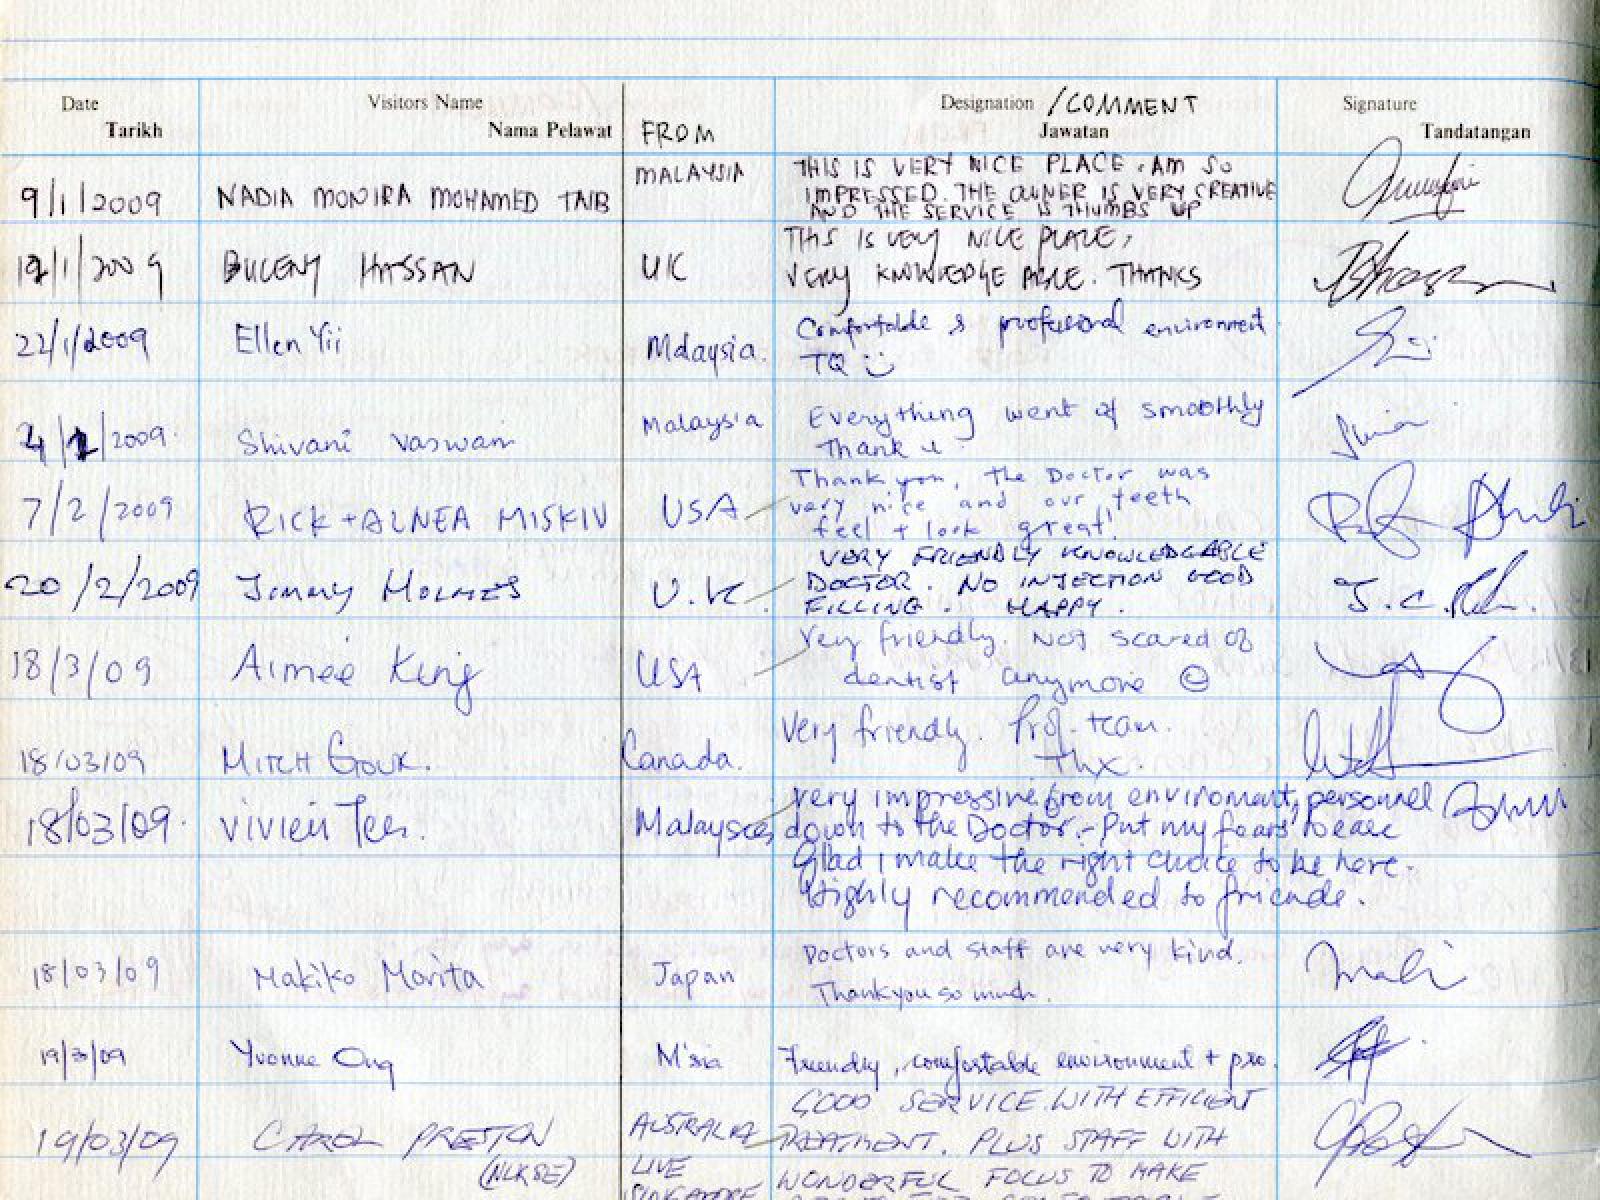 Date Visitors Name Designation /COMMENT Signature
Tarikh Nama Pelawat FROM Jawatan Tandatangan
9/1/2009 NADIA MONIRA MOHAMED TAIB MALAYSIA THIS IS VERY NICE PLACE. AM SO
IMPRESSED. THE OWNER IS VERY CREATIVE
AND THE SERVICE IS THUMBS UP
12/1/2009 BULENT HASSAN UK THIS IS VERY NICE PLACE,
VERY KNOWLEDGEABLE. THANKS
22/1/2009 Ellen Yii Malaysia. Comfortable & professional environment.
TQ
4/2/2009. Shivani Vaswani Malaysia Everything went of smoothly
Thank u
7/2/2009 RICK + ALNEA MISKIV USA Thank you, the Doctor was
very nice and our teeth
feel + look great!
20/2/2009 Jimmy Holmes U.K. VERY FRIENDLY KNOWLEDGABLE
DOCTOR. NO INJECTION GOOD
FILLING. HAPPY.
18/3/09 Aimee King USA Very friendly. Not scared of
dentist anymore ☺
18/03/09 MITCH GOUK. Canada. Very friendly. Prof. team.
Thx.
18/03/09. Vivien Tee. Malaysia, very impressive from enviroment, personnel
down to the Doctor. - Put my fears to ease
Glad I make the right choice to be here.
Highly recommended to friends.
18/03/09 Makiko Morita Japan Doctors and staff are very kind.
Thank you so much.
19/3/09 Yvonne Ong M'sia Friendly, comfortable environment + pro.
19/03/09 CAROL PRESTON AUSTRALIA GOOD SERVICE WITH EFFICIENT
TREATMENT. PLUS STAFF WITH
LIVE WONDERFUL FOCUS TO MAKE
SINGAPORE